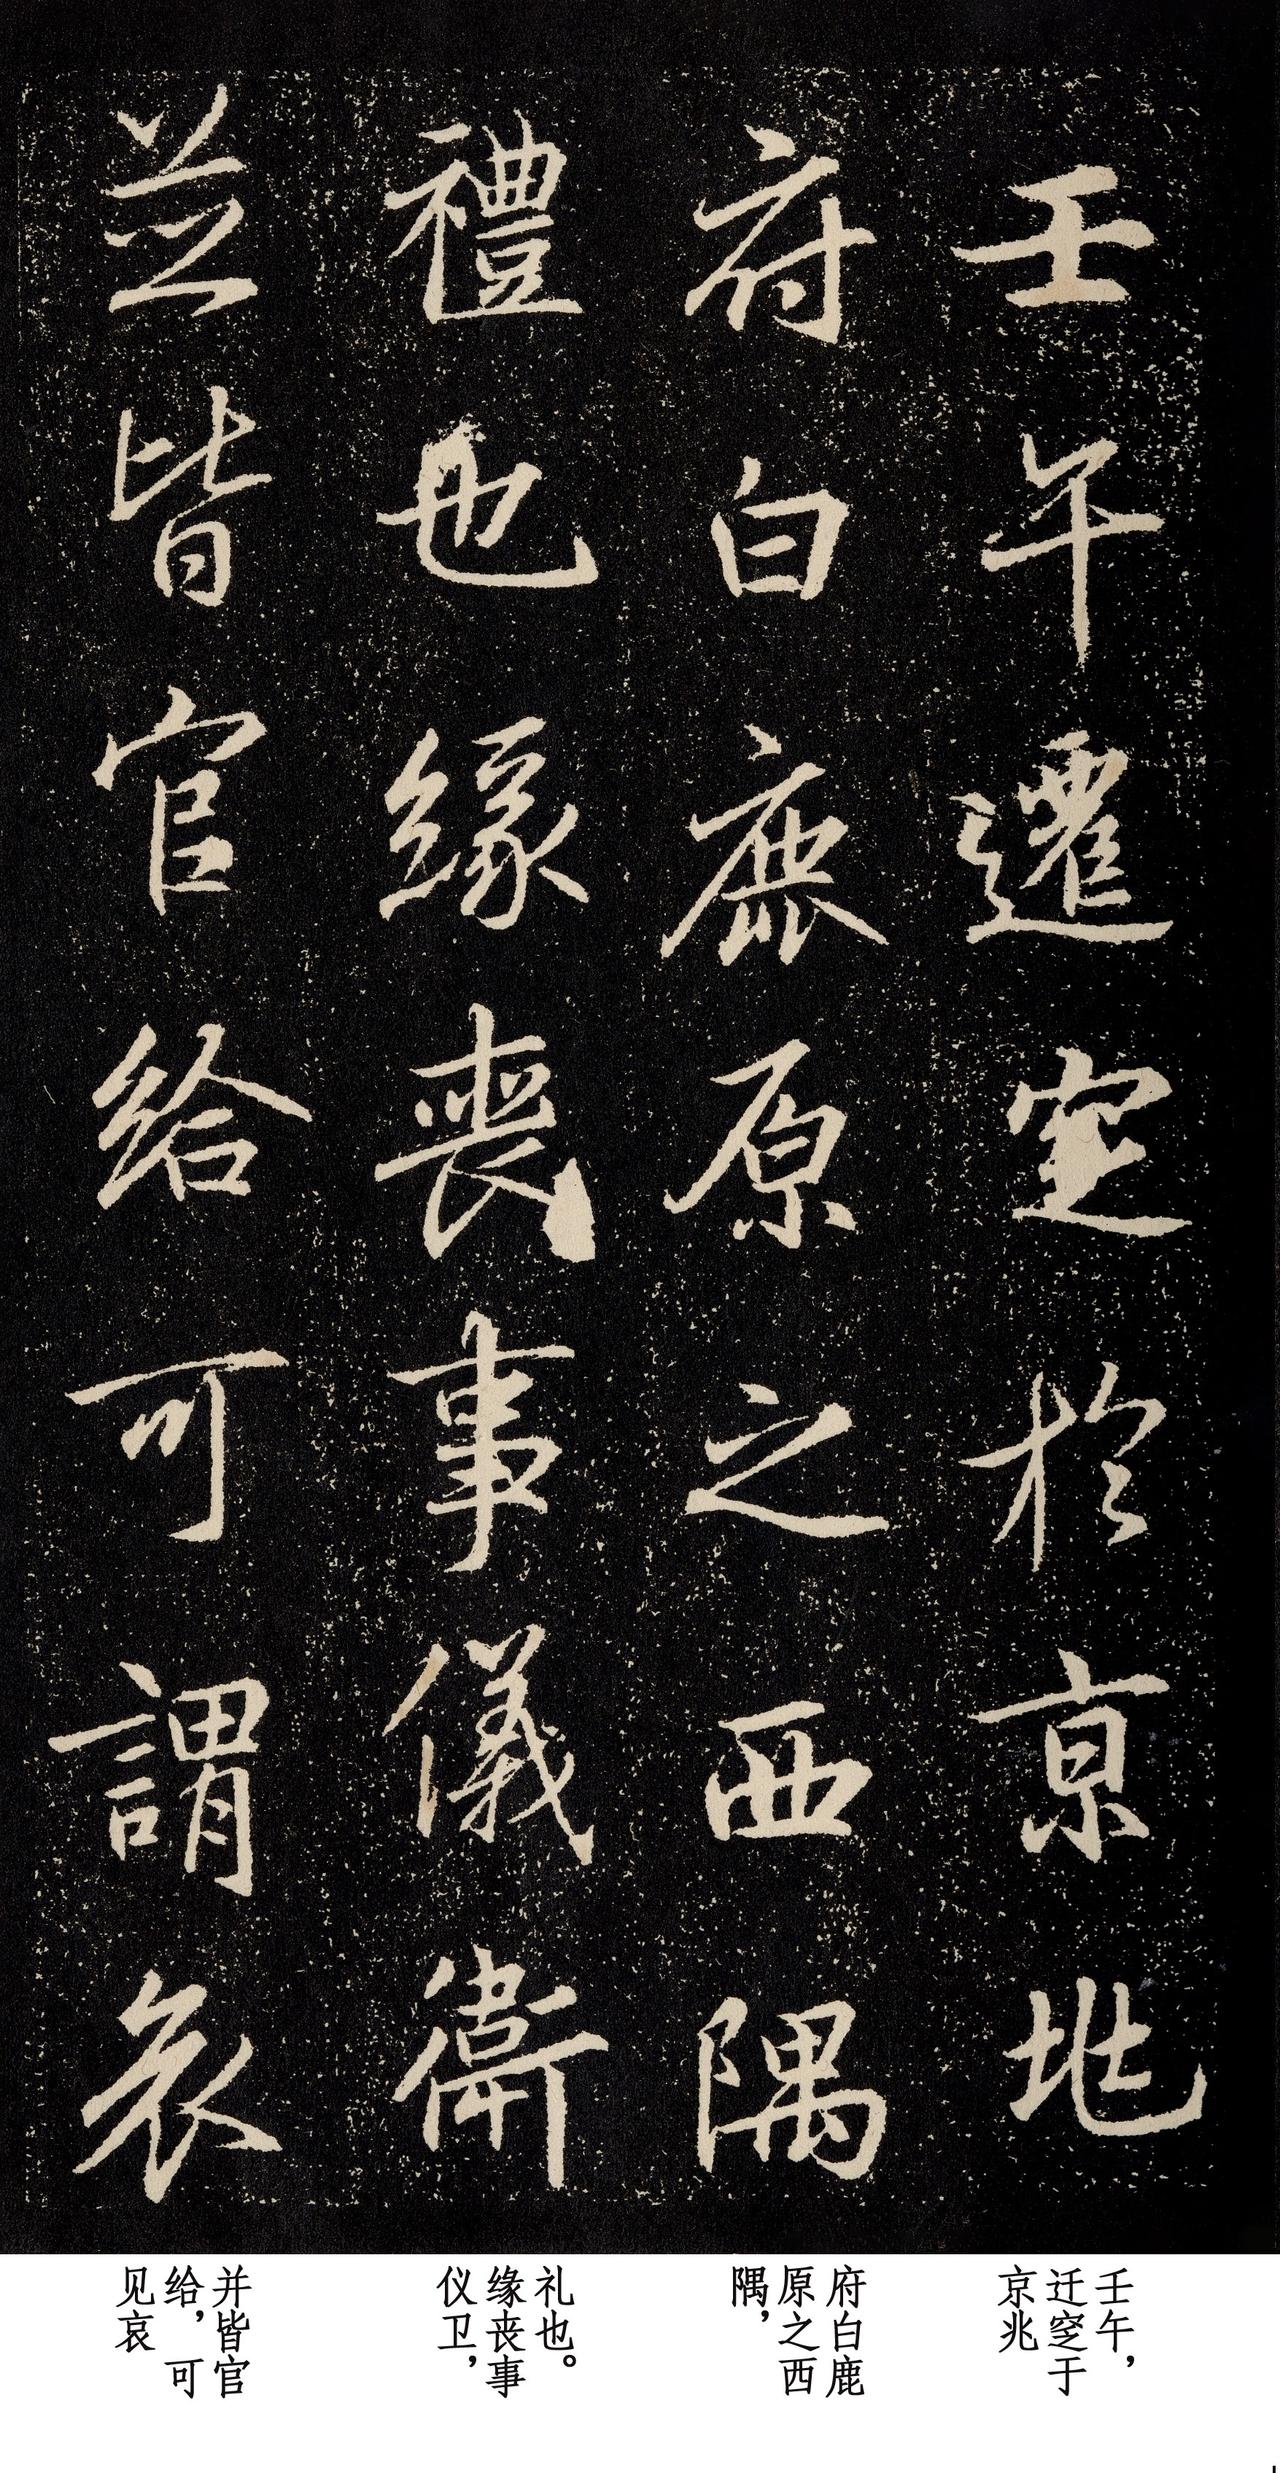 壬午遷窆於京兆
府白鹿原之西隅
禮也緣喪事儀衛
並皆官給可謂哀
壬午，
迁窆于
京兆
府白鹿
原之西
隅，
礼也。
缘丧事
仪卫，
并皆官
给，可
见哀